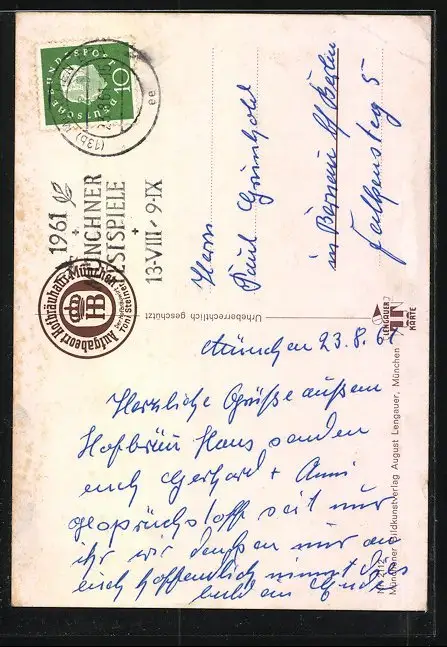 DEUTSCHE BUNDESPOST
10
(13b) MÜNCHEN
ee
1961
MÜNCHNER
FESTSPIELE
13.VIII - 9.IX
Aufgabeort Hofbräuhaus München
HB
Toni Steiner
Herrn
Paul Grünhold
in Bernau b/ Berlin
Falkensteg 5
Urheberrechtlich geschützt
LENGAUER
KARTE
München 23.8.
Herzliche Grüße aus dem
Hofbräu Haus senden
euch Gerhard + Anni
Gesprächstoff seid nur
ihr wir denken nur an
euch hoffentlich nimmt das
bald ein Ende
Nr. 2112
Münchner Bildkunstverlag August Lengauer, München